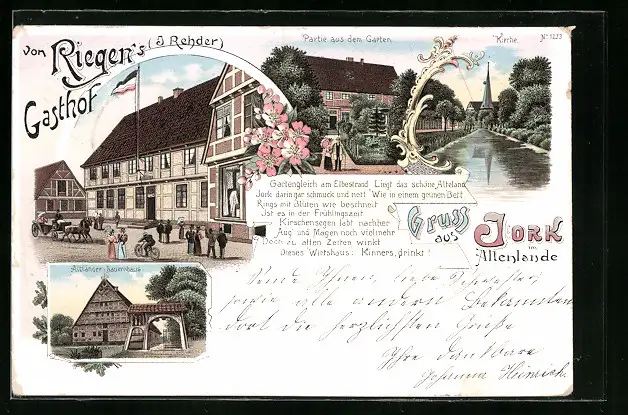 von Riegen's (J. Rehder)
Gasthof
Partie aus dem Garten.
Kirche.
No 1233
Gartengleich am Elbestrand Liegt das schöne Alteland
Jork darin gar schmuck und nett Wie in einem grünen Bett
Rings mit Blüten wie beschneit
Ist es in der Frühlingszeit.
Kirschensegen labt nachher
Aug' und Magen noch vielmehr
Doch zu allen Zeiten winkt
Dieses Wirtshaus: Kinners, drinkt!
Gruss aus Jork
im
Altenlande
Altländer Bauernhaus
Sende Ihnen, liebe
sowie alle andern Bekannten
dort die herzlichsten Grüße
Ihre dankbare
Johanna Heinrich